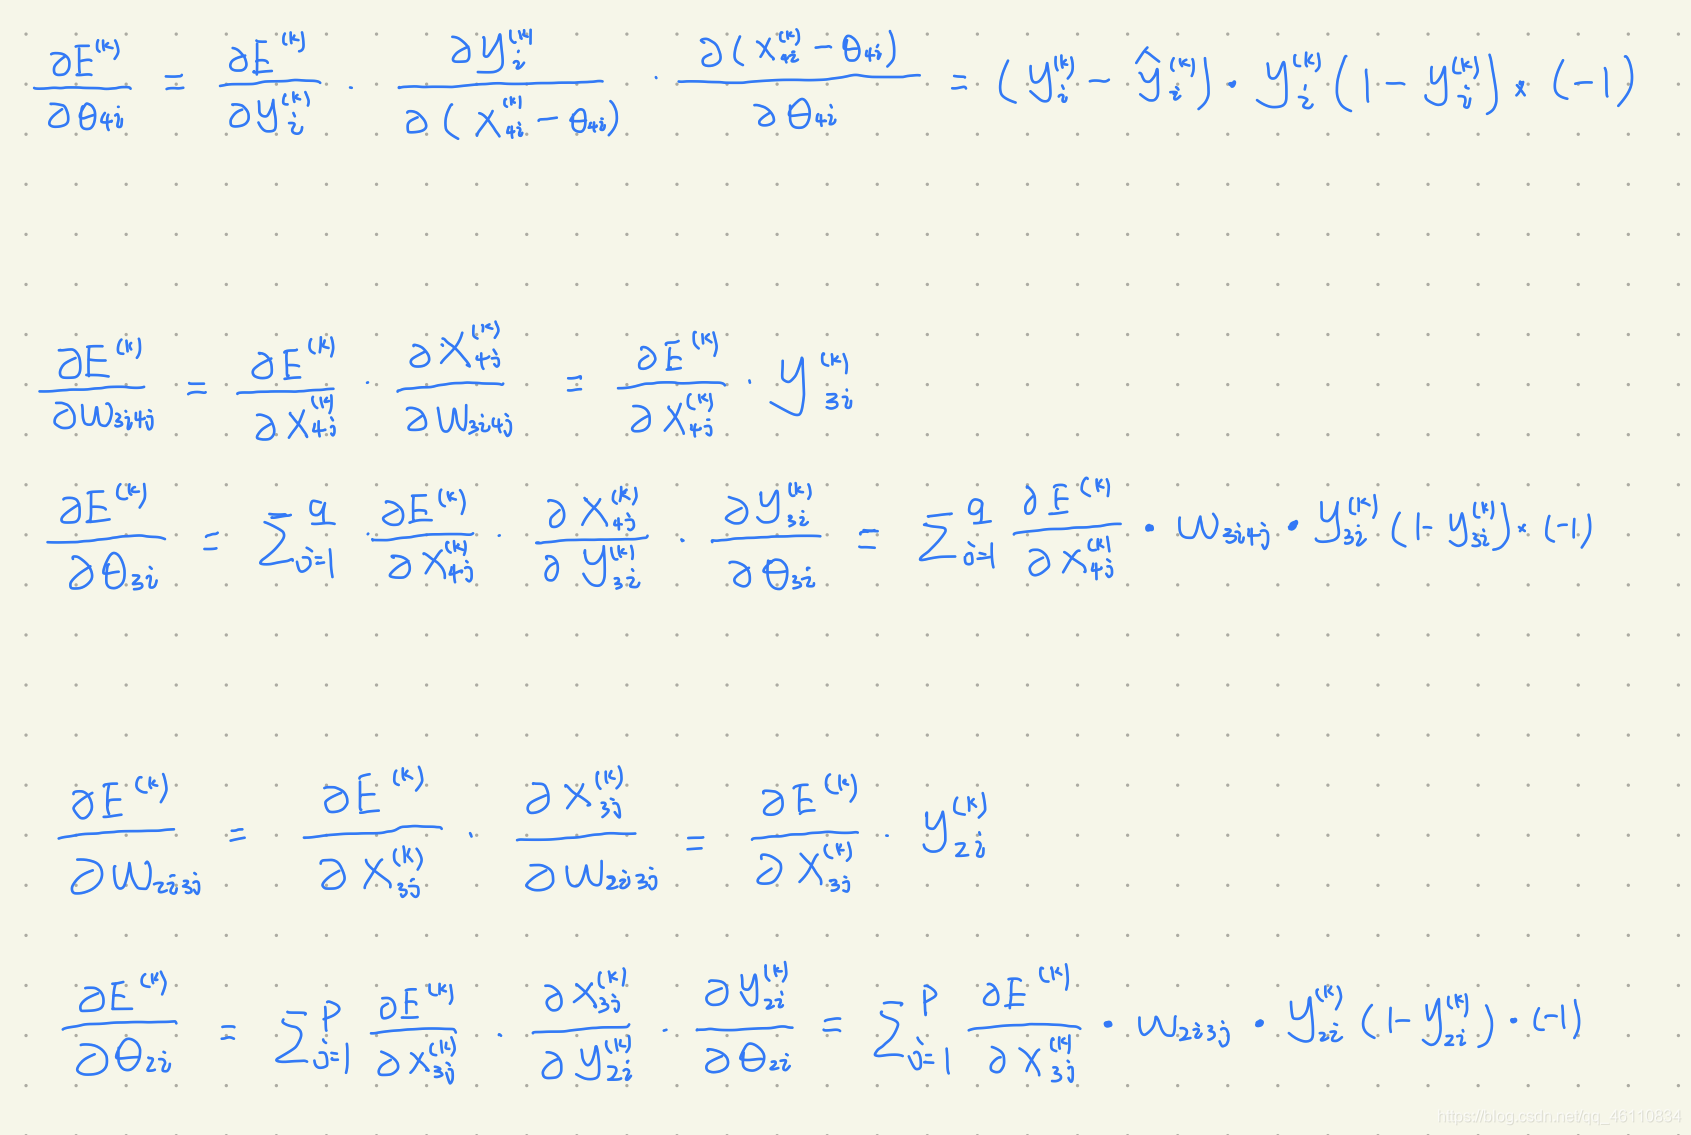 ∂E^(k)/∂θ_4i = ∂E^(k)/∂y_i^(k) · ∂y_i^(k)/∂(x_4i^(k) − θ_4i) · ∂(x_4i^(k) − θ_4i)/∂θ_4i = (y_i^(k) − ŷ_i^(k)) · y_i^(k)(1 − y_i^(k)) × (−1)
∂E^(k)/∂w_3i4j = ∂E^(k)/∂x_4j^(k) · ∂x_4j^(k)/∂w_3i4j = ∂E^(k)/∂x_4j^(k) · y_3i^(k)
∂E^(k)/∂θ_3i = Σ_j=1^q ∂E^(k)/∂x_4j^(k) · ∂x_4j^(k)/∂y_3i^(k) · ∂y_3i^(k)/∂θ_3i = Σ_j=1^q ∂E^(k)/∂x_4j^(k) · w_3i4j · y_3i^(k)(1 − y_3i^(k)) × (−1)
∂E^(k)/∂w_2i3j = ∂E^(k)/∂x_3j^(k) · ∂x_3j^(k)/∂w_2i3j = ∂E^(k)/∂x_3j^(k) · y_2i^(k)
∂E^(k)/∂θ_2i = Σ_j=1^p ∂E^(k)/∂x_3j^(k) · ∂x_3j^(k)/∂y_2i^(k) · ∂y_2i^(k)/∂θ_2i = Σ_j=1^p ∂E^(k)/∂x_3j^(k) · w_2i3j · y_2i^(k)(1 − y_2i^(k)) · (−1)
https://blog.csdn.net/qq_46110834